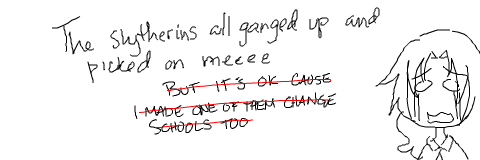 The slytherins all ganged up and
picked on meeee
BUT IT'S OK CAUSE
I MADE ONE OF THEM CHANGE
SCHOOLS TOO